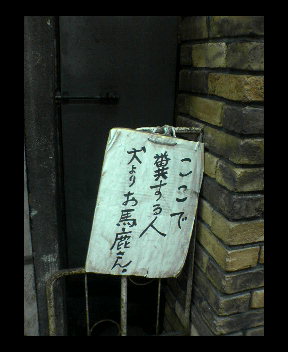 ここで
糞する人
犬よりお馬鹿さん。